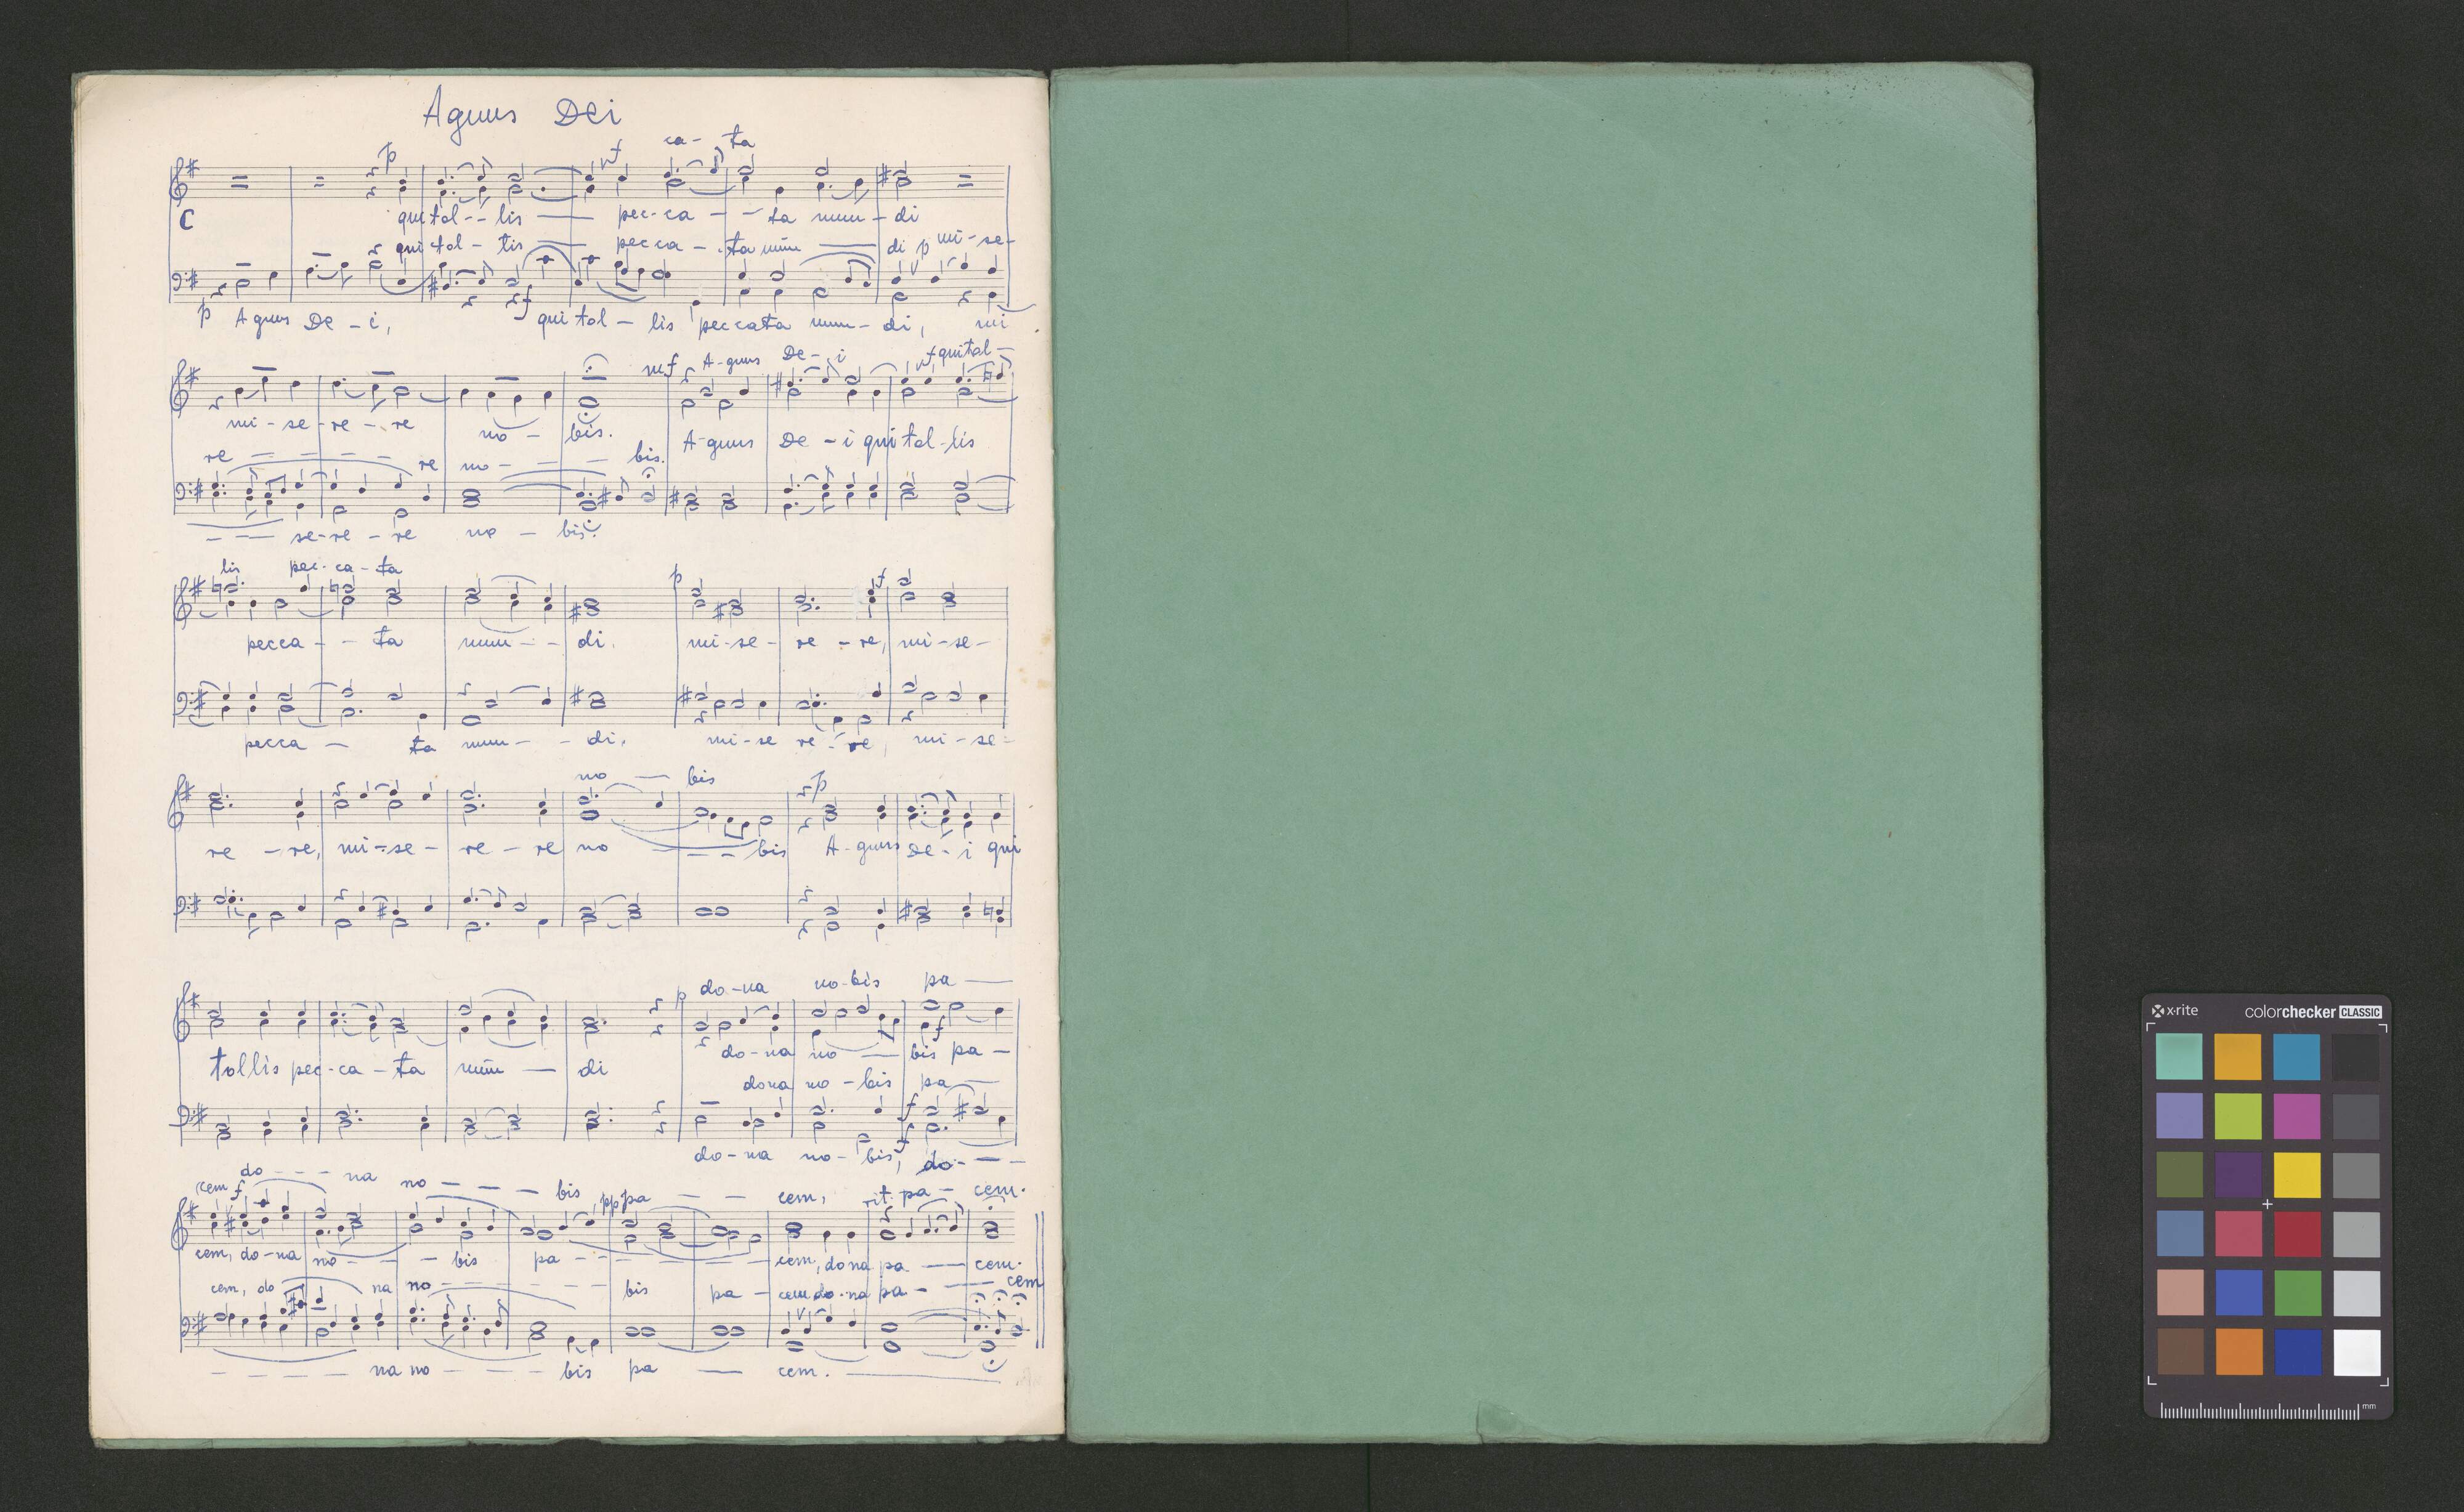 Agnus Dei
ca - ta
p mf
C
qui tol - - lis — pec - ca - - ta mun - di
qui tol - lis — pec ca - ta mun — di p mi - se -
p A gnus De - i, f qui tol - lis peccata mun - di, mi
mf A - gnus De - i f qui tol -
mi - se - re - re no - bis. A - gnus De - i qui tol - lis
re - - - - re no - - - bis.
- - — se - re - re no - bis.
lis pec - ca - ta
p f
pecca - - ta mun - - di. mi - se - re - re, mi - se -
pecca - ta mun - - di. mi - se re - re, mi - se -
no — bis
p
re - re, mi - se - re - re no - - - bis A - gnus De - i qui
p do - na no - bis pa —
f
do - na no — bis pa -
tollis pec - ca - ta mun — di
dona no - bis pa —
f
f
do - na no - bis, do - - -
cem f do - - - na no - - - bis pp pa - - cem, rit. pa - cem.
cem, do - na no - - - bis pa - - - - - cem, dona pa — cem.
cem, do na no - - - - - bis pa - cem do - na pa - — cem
- - - - - na no - - - - bis pa — cem. —
x·rite colorchecker CLASSIC
mm